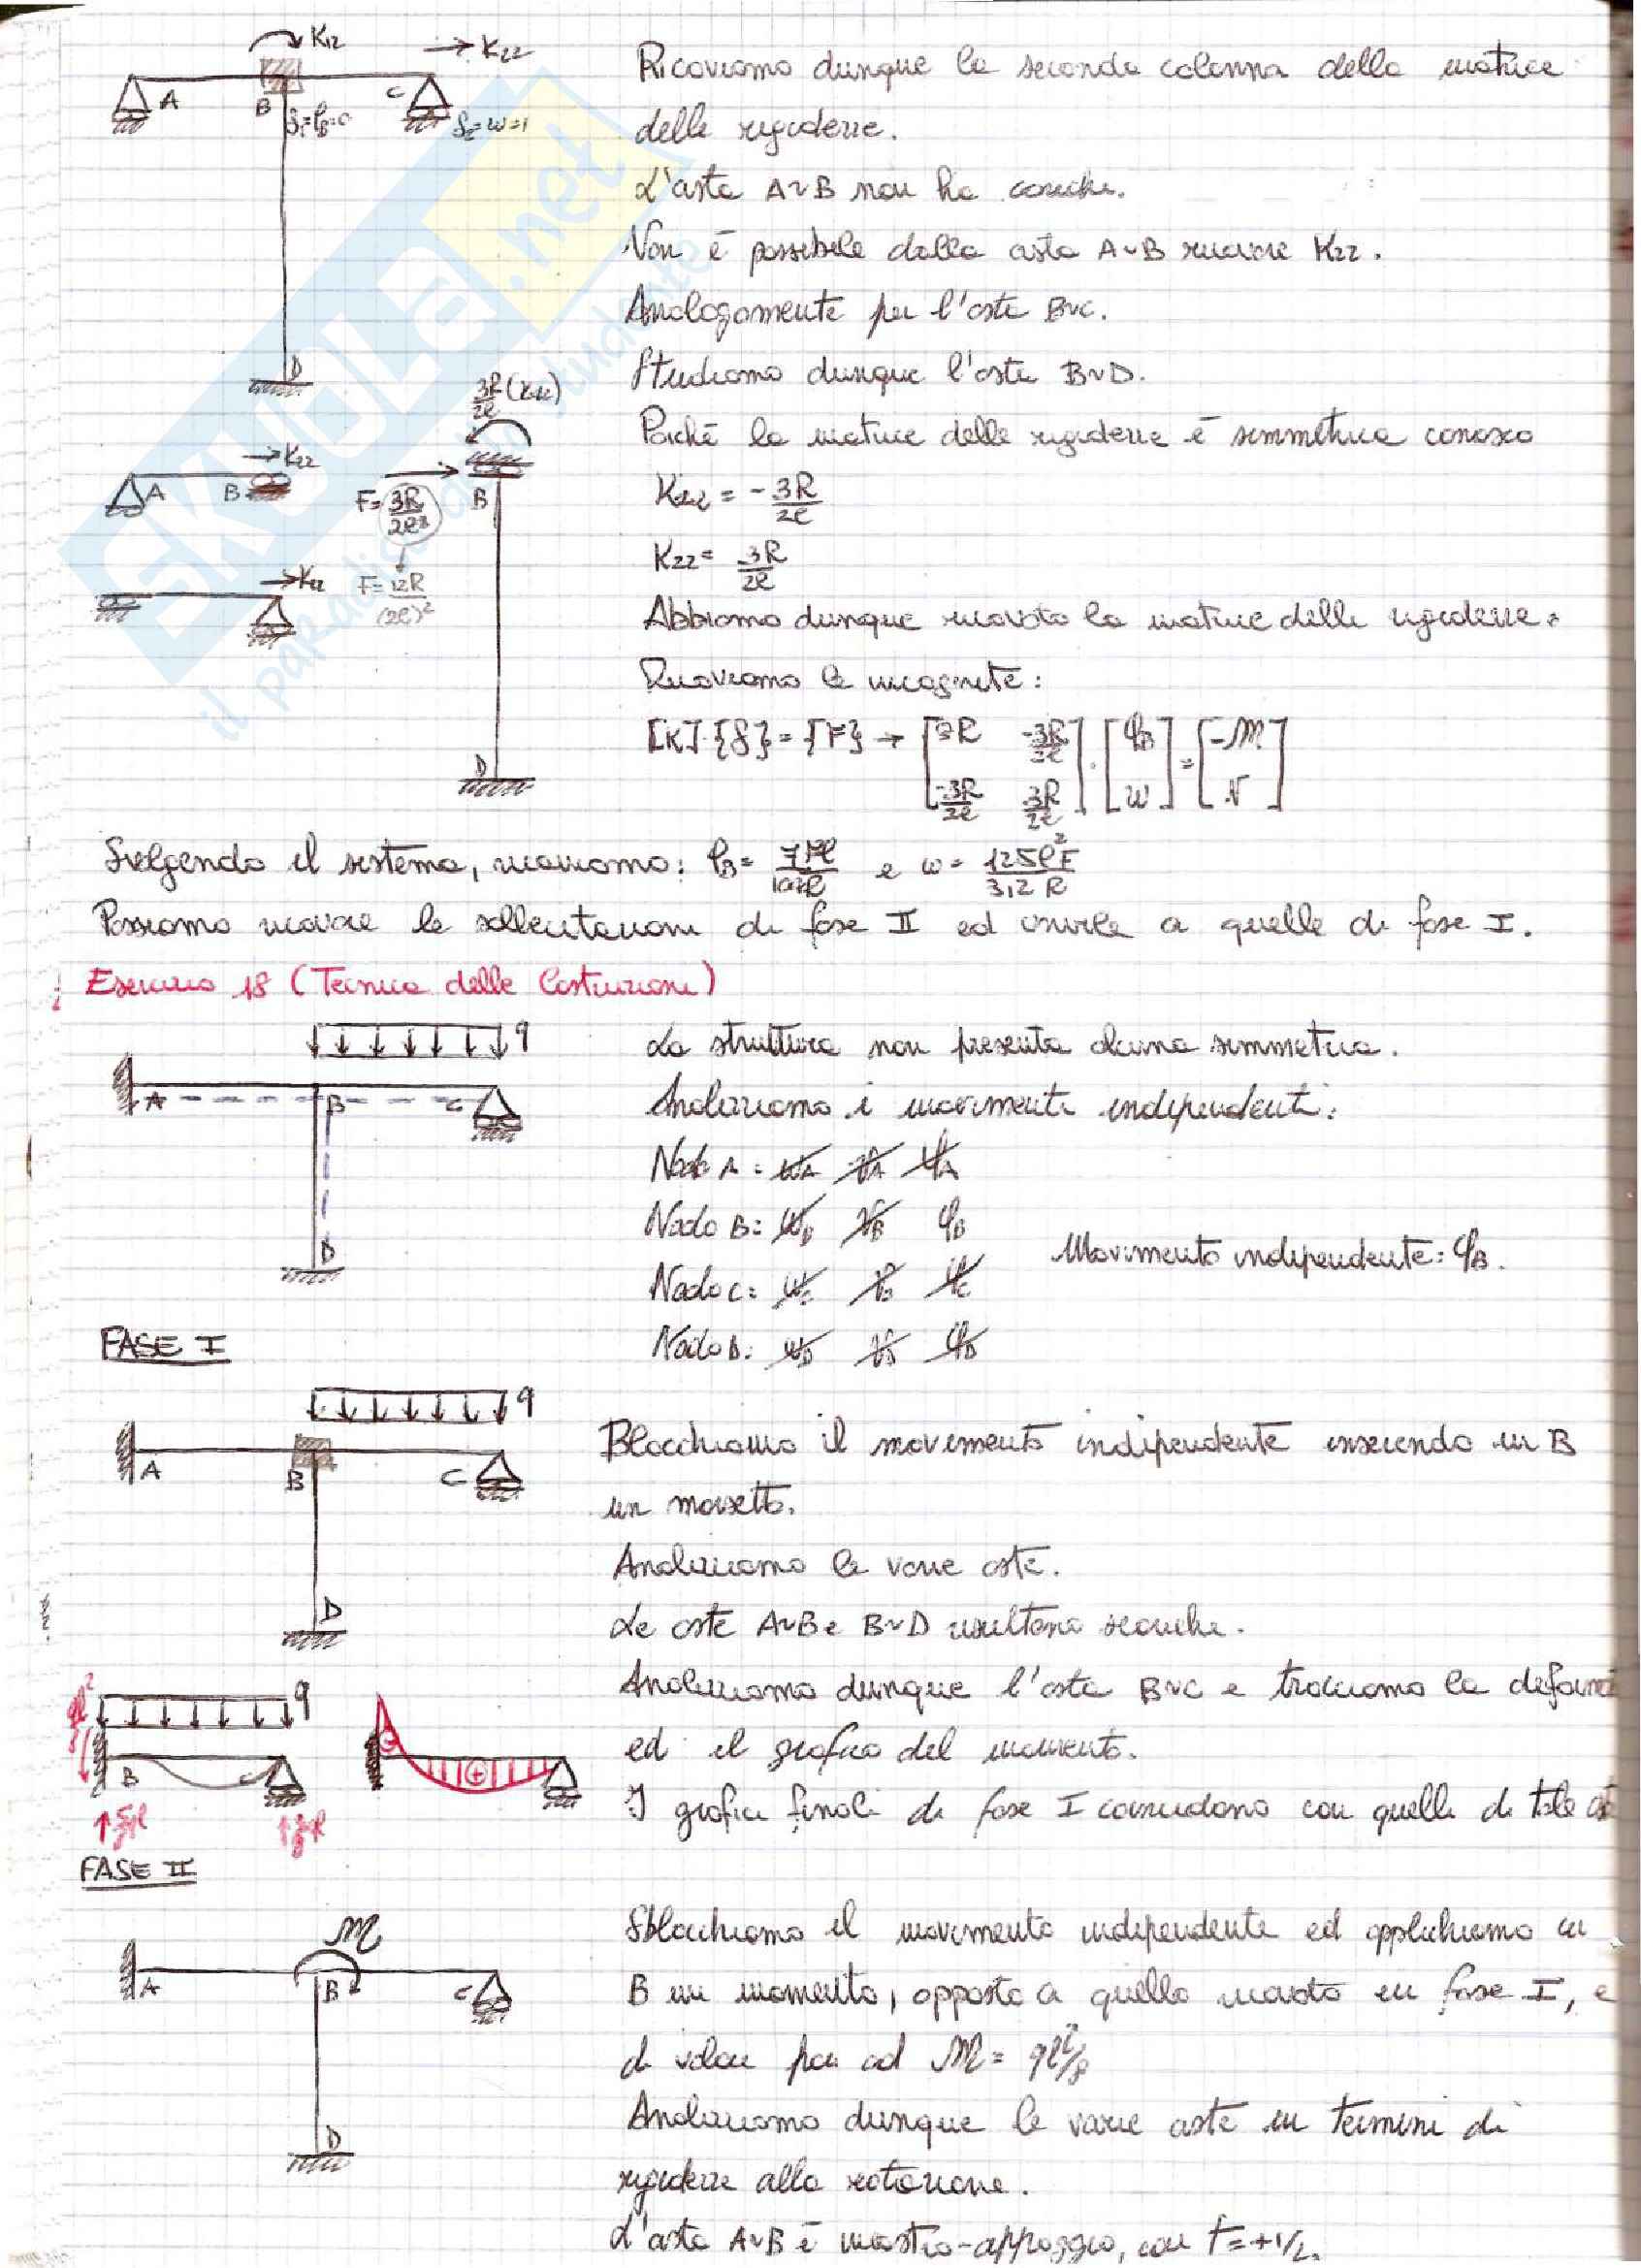 K12
K22
A
B
C
δ1=φB=0
δ2=w=1
D
Ricaviamo dunque la seconda colonna della matrice
delle rigidezze.
L'asta A~B non ha carichi.
Non è possibile dalla asta A~B ricavare K22.
Analogamente per l'asta B~C.
Studiamo dunque l'asta B~D.
3R/2ℓ (K12)
Poiché la matrice delle rigidezze è simmetrica conosco
K22
A
B
F= 3R/2ℓ²
B
K12 = - 3R/2ℓ
K22 = 3R/2ℓ
F= 12R/(2ℓ)²
Abbiamo dunque ricavato la matrice delle rigidezze.
Ricaviamo le incognite:
[K]·{δ}={F} → [3R -3R/2ℓ -3R/2ℓ 3R/2ℓ] · [φB w] = [-M N]
D
Svolgendo il sistema, ricaviamo: φB= e w=
Possiamo ricavare le sollecitazioni di fase II ed unirle a quelle di fase I.
Esercizio 18 (Tecnica delle Costruzioni)
q
A
B
C
D
La struttura non presenta alcuna simmetria.
Analizziamo i movimenti indipendenti:
Nodo A: wA vA φA
Nodo B: wB vB φB
Movimento indipendente: φB.
Nodo C: wC vC φC
Nodo D: wD vD φD
FASE I
q
A
B
C
D
Blocchiamo il movimento indipendente inserendo in B
un morsetto.
Analizziamo le varie aste.
Le aste A~B e B~D risultano scariche.
Analizziamo dunque l'asta B~C e tracciamo la deforma
ed il grafico del momento.
I grafici finali di fase I coincidono con quelli di tale
q
B
+
FASE II
M
A
B
C
D
Sblocchiamo il movimento indipendente ed applichiamo in
B un momento, opposto a quello ricavato in fase I, e
di valore pari ad M= qℓ²/8
Analizziamo dunque le varie aste in termini di
rigidezze alla rotazione.
L'asta A~B è incastro-appoggio, con t=+1/2.
SKUOLA.net
il paradiso dello studente